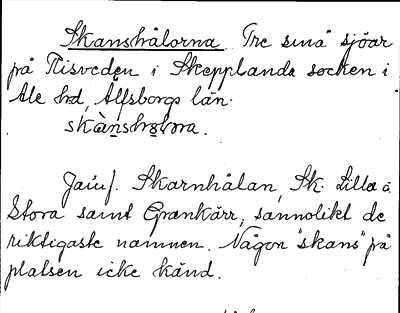 Skanshålorna. Tre små sjöar
på Risveden i Skepplanda socken i
Ale hd, Älfsborgs län.
skànshålora.
Jaïuf. Skarnhålan, Sk. Lilla o.
Stora samt Grankärr, sannolikt de
riktigaste namnen. Någon "skans" på
platsen icke känd.